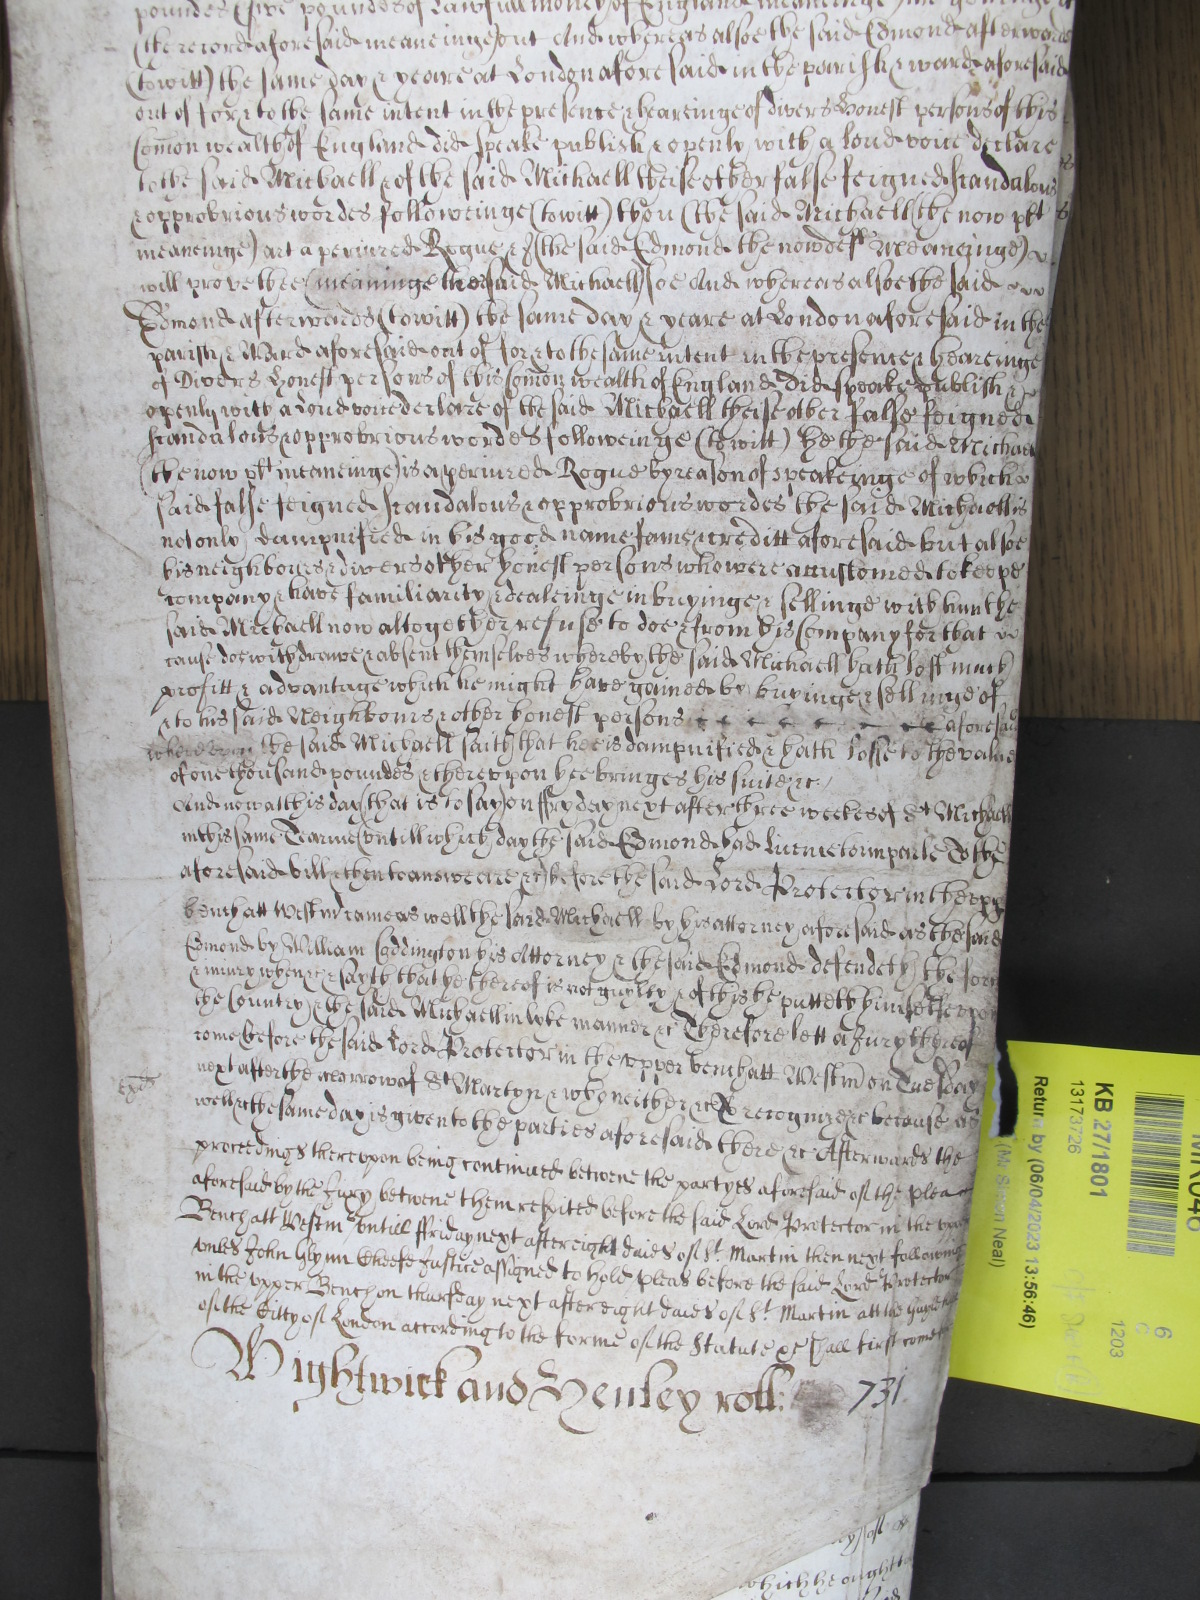 poundes (five poundes of lawfull money of England meaneinge)
(the record aforesaid meaneinge) out And whereas alsoe the said Edmond afterwards
(towitt) the same day & yeare at London aforesaid in the parish & ward aforesaid
out of for & to the same intent in the presence & heareinge of divers honest persons of this
Com̃on wealth of England did speake publish & openly with a loud voice declare
to the said Michaell & of the said Michaell theise other false feigned scandalous
& opprobrious wordes followeinge (towitt) thou (the said Michaell the now plt
meaneinge) art a periured Rogue & I (the said Edmond the now deft meaneinge)
will prove thee (meaninge the said Michaell) soe And whereas alsoe the said
Edmond afterwards (towitt) the same day & yeare at London aforesaid in the
parish & Ward aforesaid out of for & to the same intent in the presence & heareinge
of Divers honest persons of this Com̃on wealth of England did speake publish &
openly with a loud voice declare of the said Michaell theise other false feigned
scandalous & opprobrious wordes followeinge (towitt) He the said Michaell
(the now plt meaneinge) is a periured Rogue by reason of speakeinge of which
said false feigned scandalous & opprobrious wordes the said Michaell is
not only dampnified in his good name fame & creditt aforesaid but alsoe
his neighbours & divers other honest persons who were accustomed to keepe
company & have familiarity & dealeinge in buyinge & sellinge with him the
said Michaell now altogether refuse to doe & from his company for that
cause doe withdrawe & absent themselves whereby the said Michaell hath lost much
profitt & advantage which he might have gained by buyinge & sellinge of
& to his said Neighbours & other honest persons aforesaid
whereupon the said Michaell saith that hee is dampnified & hath losse to the value
of one thousand poundes & thereupon hee bringes his suite &c.
And now att this day (that is to say) on ffryday next after three weekes of St Michaell
in this same Tearme (untill which day the said Edmond had licence to imparle To the
aforesaid bill & then to answeare &c) before the said Lord Protector in the upp
bench att Westm̃ came as well the said Michaell by his attorney aforesaid as the said
Edmond by William Coddington his Attorney & the said Edmond defendeth the force
& iniury when &c & sayth that he thereof is not guylty & of this he putteth himselfe upon
the Country & the said Michaell in lyke manner &c Therefore lett a Jury thereof
come before the said Lord Protector in the upper bench att Westm̃ on Tuesday
next after the morrow of St Martyn & who neither &c To recognize &c because as
well &c the same day is given to the parties aforesaid there &c Afterwards the
proceedings thereupon being continued betwene the partyes aforesaid of the plea
aforesaid by the Jury betwene them respited before the said Lord Protector in the upper
Bench att Westm̃ untill ffriday next after eight daies of St. Martin then next following
unles John Glynn Cheefe Justice assigned to hold pleas before the said Lord Protector
in the upper Bench on thursday next after eight daies of St. Martin att the Guyldhall
of the Citty of London according to the forme of the Statute &c shall first come
Wightwick and Henley roll: 731.
KB 27/1801
13173726
Return by (06/04/2023 13:56:46)
6
C
1203
which he ought to